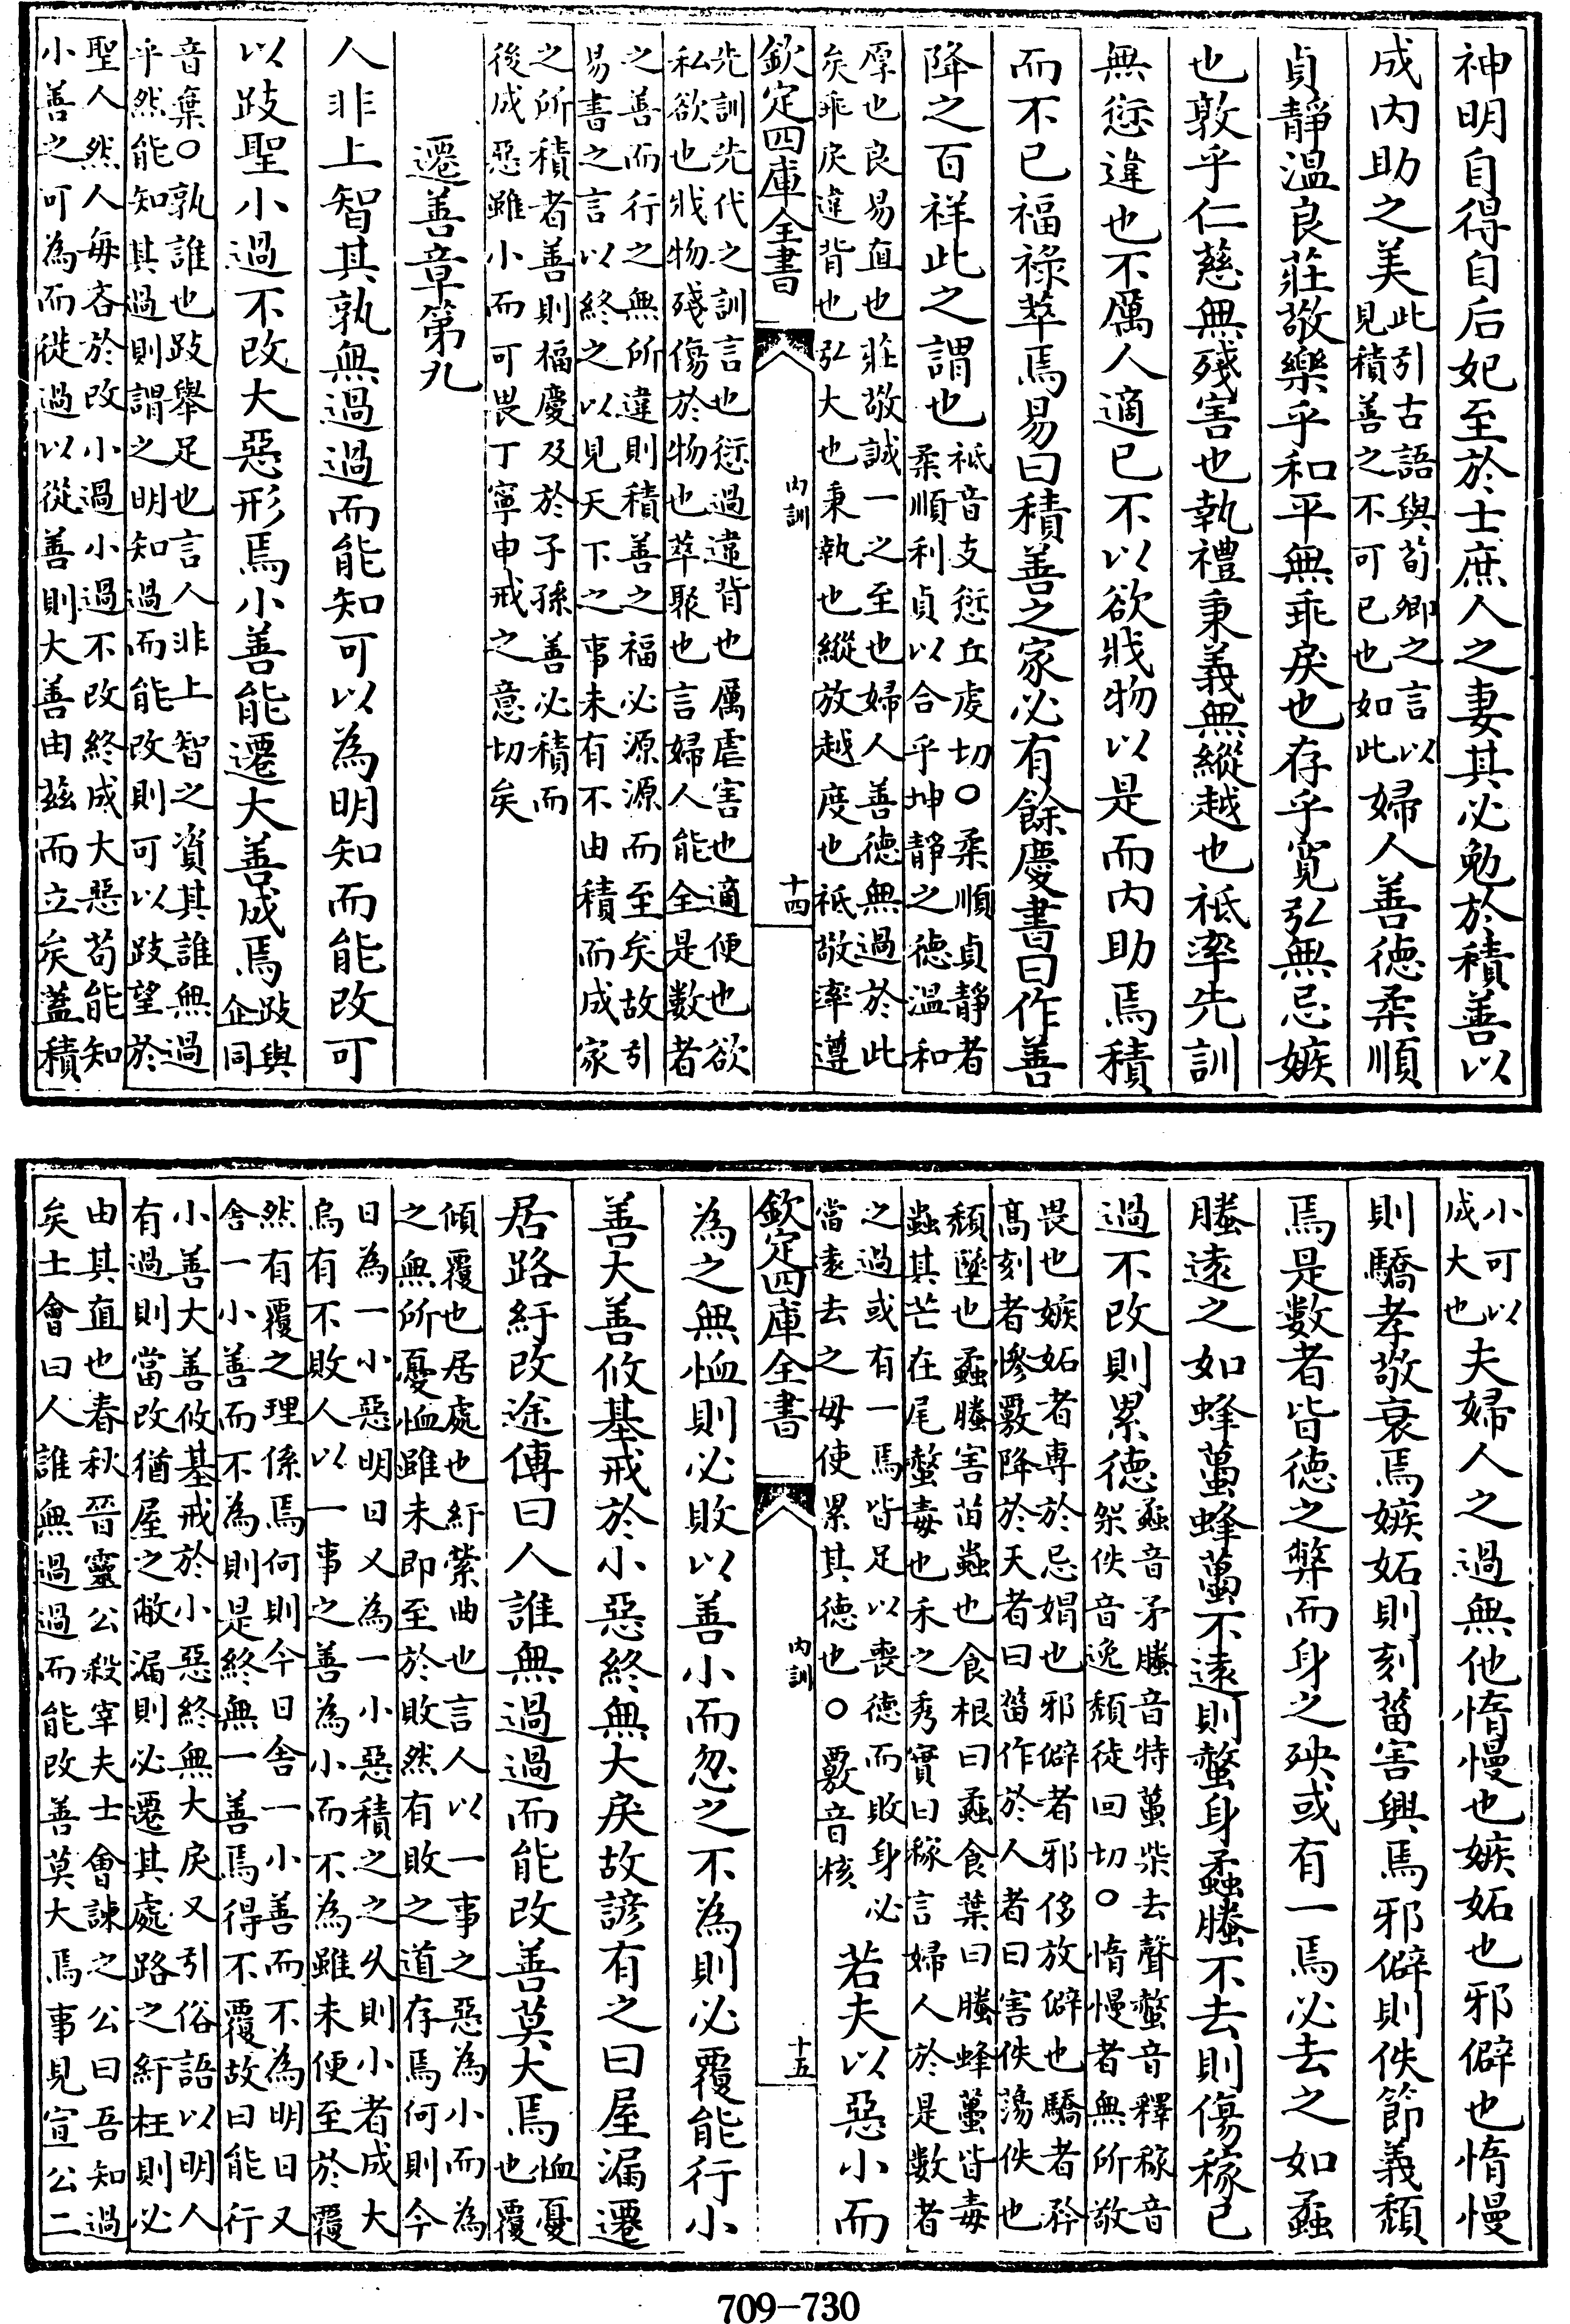 神明自得自后妃至於士庶人之妻其必勉於積善以
成内助之美
此引古語與荀卿之言以
見積善之不可已也如此
婦人善德柔順
貞靜溫良莊敬樂乎和平無乖戾也存乎寬弘無忌嫉
也敦乎仁慈無殘害也執禮秉義無縱越也祗率先訓
無愆違也不厲人適已不以欲戕物以是而内助焉積
而不已福祿萃焉易曰積善之家必有餘慶書曰作善
降之百祥此之謂也
祗音支愆丘虔切○柔順貞靜者
柔順利貞以合乎坤靜之德溫和
厚也良易直也莊敬誠一之至也婦人善德無過於此
矣乖戾違背也弘大也秉執也縱放越度也祗敬率遵
欽定四庫全書
内訓
十四
先訓先代之訓言也愆過違背也厲虐害也適便也欲
私欲也戕物殘傷於物也萃聚也言婦人能全是數者
之善而行之無所違則積善之福必源源而至矣故引
易書之言以終之以見天下之事未有不由積而成家
之所積者善則福慶及於子孫善必積而
後成惡雖小而可畏丁寧申戒之意切矣
遷善章第九
人非上智其孰無過過而能知可以為明知而能改可
以跂聖小過不改大惡形焉小善能遷大善成焉
跂與
企同
音棄○孰誰也跂舉足也言人非上智之資其誰無過
乎然能知其過則謂之明知過而能改則可以跂望於
聖人然人每吝於改小過小過不改終成大惡苟能知
小善之可為而徙過以從善則大善由茲而立矣蓋積
小可以
成大也
夫婦人之過無他惰慢也嫉妬也邪僻也惰慢
則驕孝敬衰焉嫉妬則刻菑害興焉邪僻則佚節義頽
焉是數者皆德之弊而身之殃或有一焉必去之如蟊
螣遠之如蜂蠆蜂蠆不遠則螫身蟊螣不去則傷稼已
過不改則累德
蟊音矛螣音特蠆柴去聲螫音釋稼音
架佚音逸頽徒回切○惰慢者無所敬
畏也嫉妬者專於忌娼也邪僻者邪侈放僻也驕者矜
高刻者慘覈降於天者曰菑作於人者曰害佚蕩佚也
頽墜也蟊螣害苗蟲也食根曰蟊食葉曰螣蜂蠆皆毒
蟲其芒在尾螫毒也禾之秀實曰稼言婦人於是數者
之過或有一焉皆足以喪德而敗身必
當遠去之毋使累其德也○覈音核
若夫以惡小而
欽定四庫全書
内訓
十五
為之無恤則必敗以善小而忽之不為則必覆能行小
善大善攸基戒於小惡終無大戾故諺有之曰屋漏遷
居路紆改途傳曰人誰無過過而能改善莫大焉
恤憂
也覆
傾覆也居處也紆縈曲也言人以一事之惡為小而為
之無所憂恤雖未即至於敗然有敗之道存焉何則今
日為一小惡明日又為一小惡積之之久則小者成大
烏有不敗人以一事之善為小而不為雖未便至於覆
然有覆之理係焉何則今日舍一小善而不為明日又
舍一小善而不為則是終無一善焉得不覆故曰能行
小善大善攸基戒於小惡終無大戾又引俗語以明人
有過則當改猶屋之敝漏則必遷其處路之紆枉則必
由其直也春秋晉靈公殺宰夫士會諫之公曰吾知過
矣士會曰人誰無過過而能改善莫大焉事見宣公二
709—730